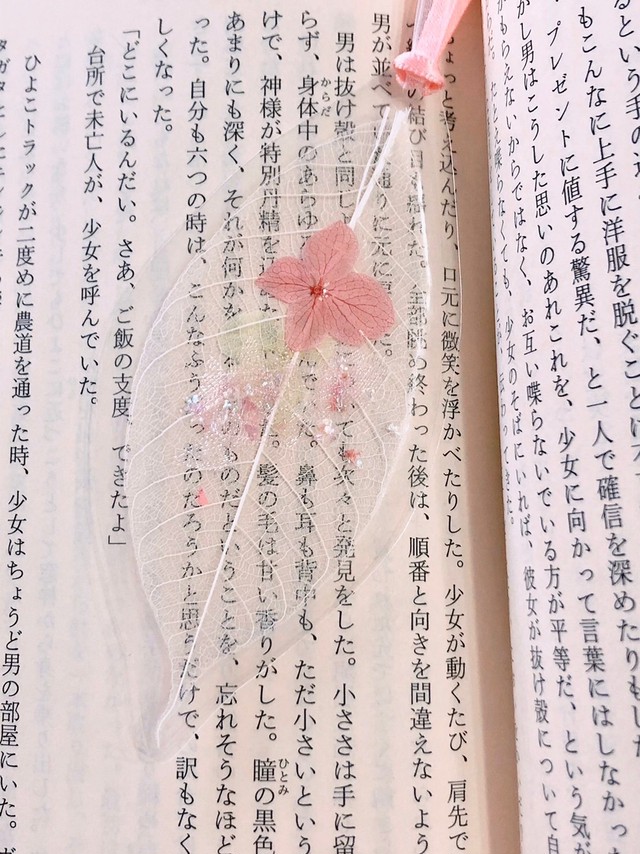 るという手の
もこんなに上手に洋服を脱ぐことは
プレゼントに値する驚異だ、と一人で確信を深めたりもした
かし男はこうした思いのあれこれを、少女に向かって言葉にはしなかっ
がもらえないからではなく、お互い喋らないでいる方が平等だ、という気が
たとえ喋らなくても、少女のそばにいれば、彼女が抜け殻について自
ちょっと考え込んだり、口元に微笑を浮かべたりした。少女が動くたび、肩先で
の結び目も揺れた。全部眺め終わった後は、順番と向きを間違えないよう
男が並べて 通りに元に
男は抜け殻と同じよ ついても次々と発見をした。小ささは手に留
らず、身体中のあらゆ でいた。鼻も耳も背中も、ただ小さいという
けで、神様が特別丹精を 髪の毛は甘い香りがした。瞳の黒色
あまりにも深く、それが何かを ものだということを、忘れそうなほど
った。自分も六つの時は、こんなふう ったのだろうかと思うだけで、訳もなく
しくなった。
「どこにいるんだい。さあ、ご飯の支度 できたよ」
台所で未亡人が、少女を呼んでいた。
ひよこトラックが二度めに農道を通った時、少女はちょうど男の部屋にいた。